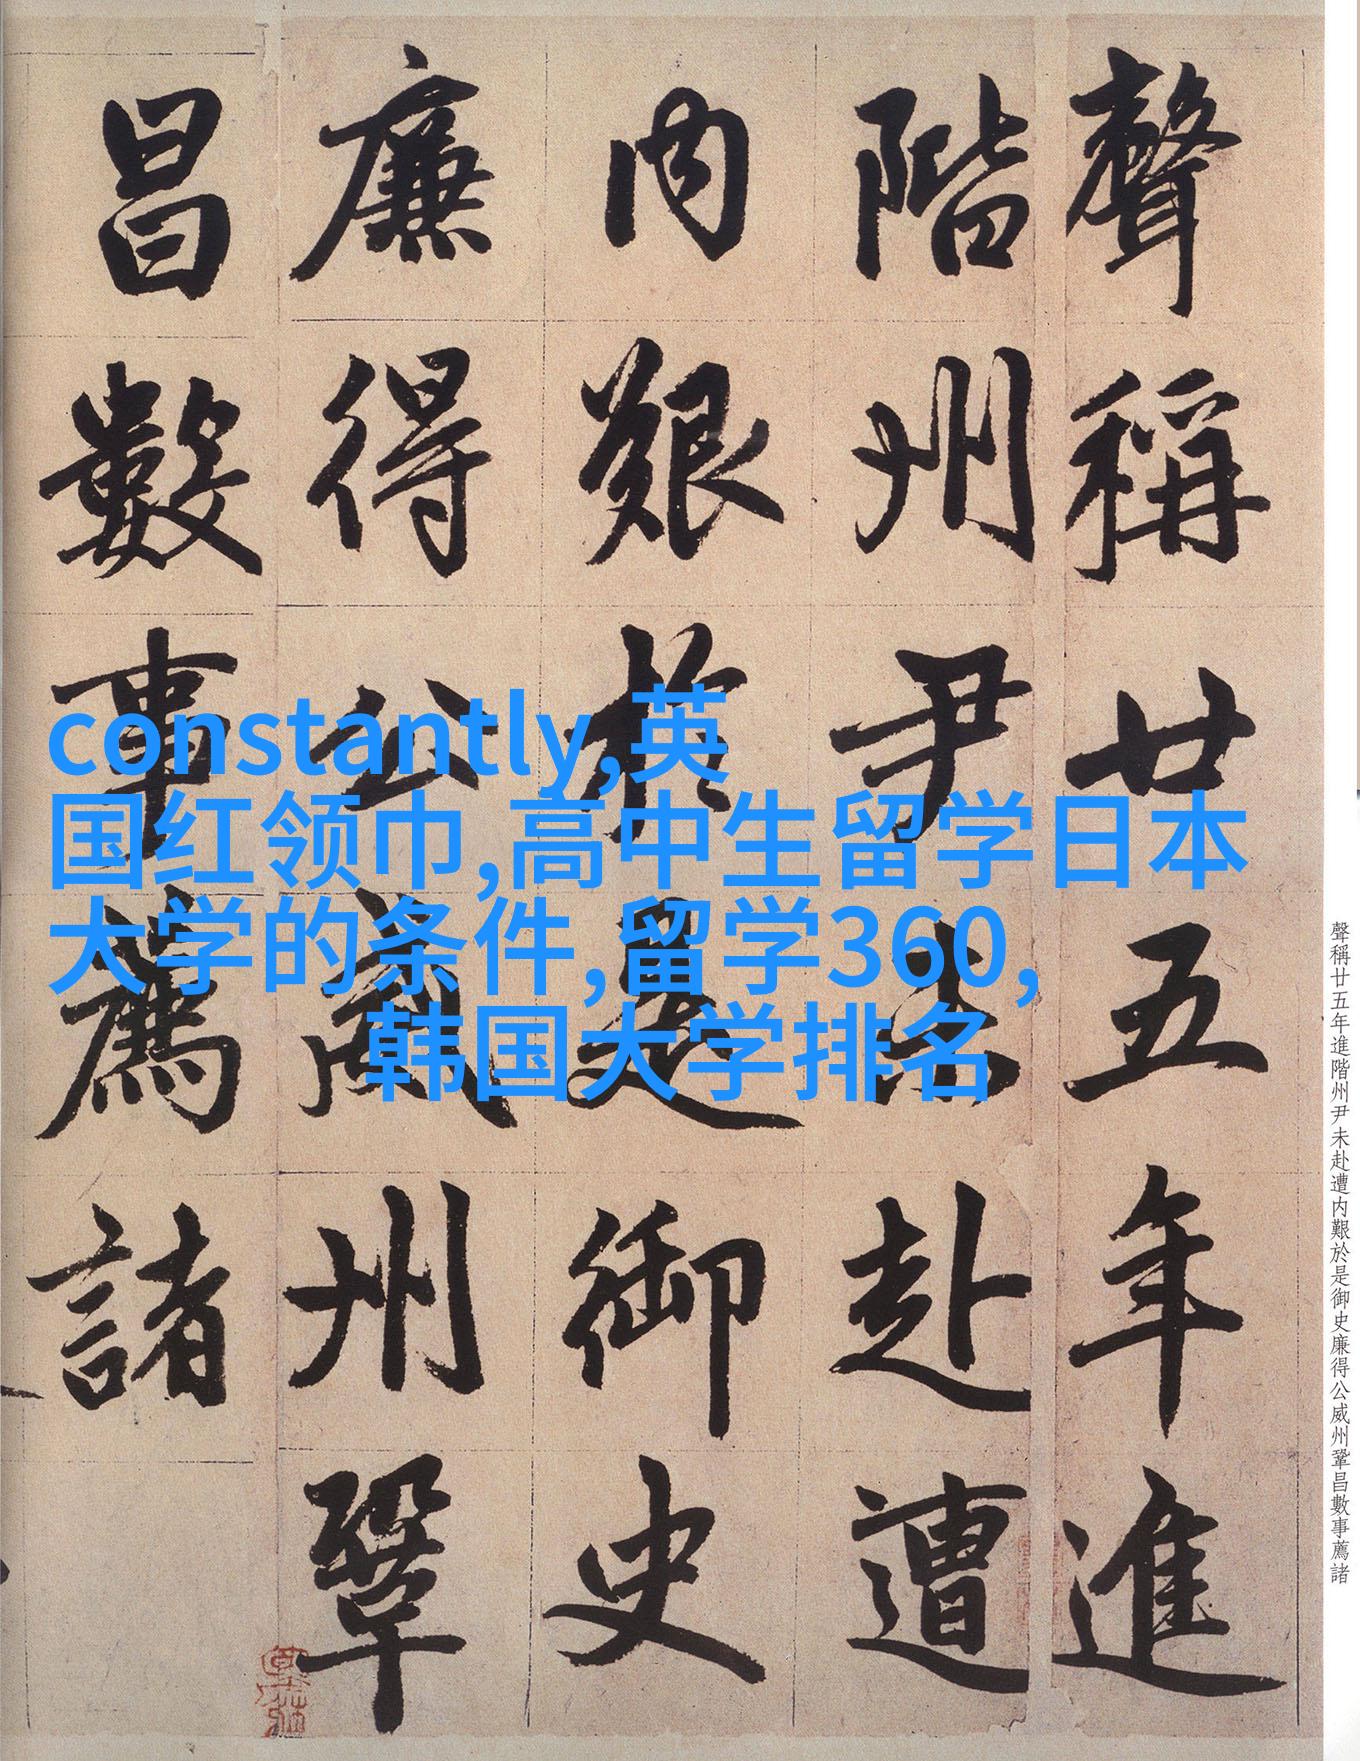 聲稱廿五年進
階州尹未赴遭
内艱於是御史
廉得公威州鞏
昌數事薦諸
constantly,英
国红领巾,高中生留学日本
大学的条件,留学360,
韩国大学排名
聲稱廿五年進階州尹未赴遭内艱於是御史廉得公威州鞏昌數事薦諸